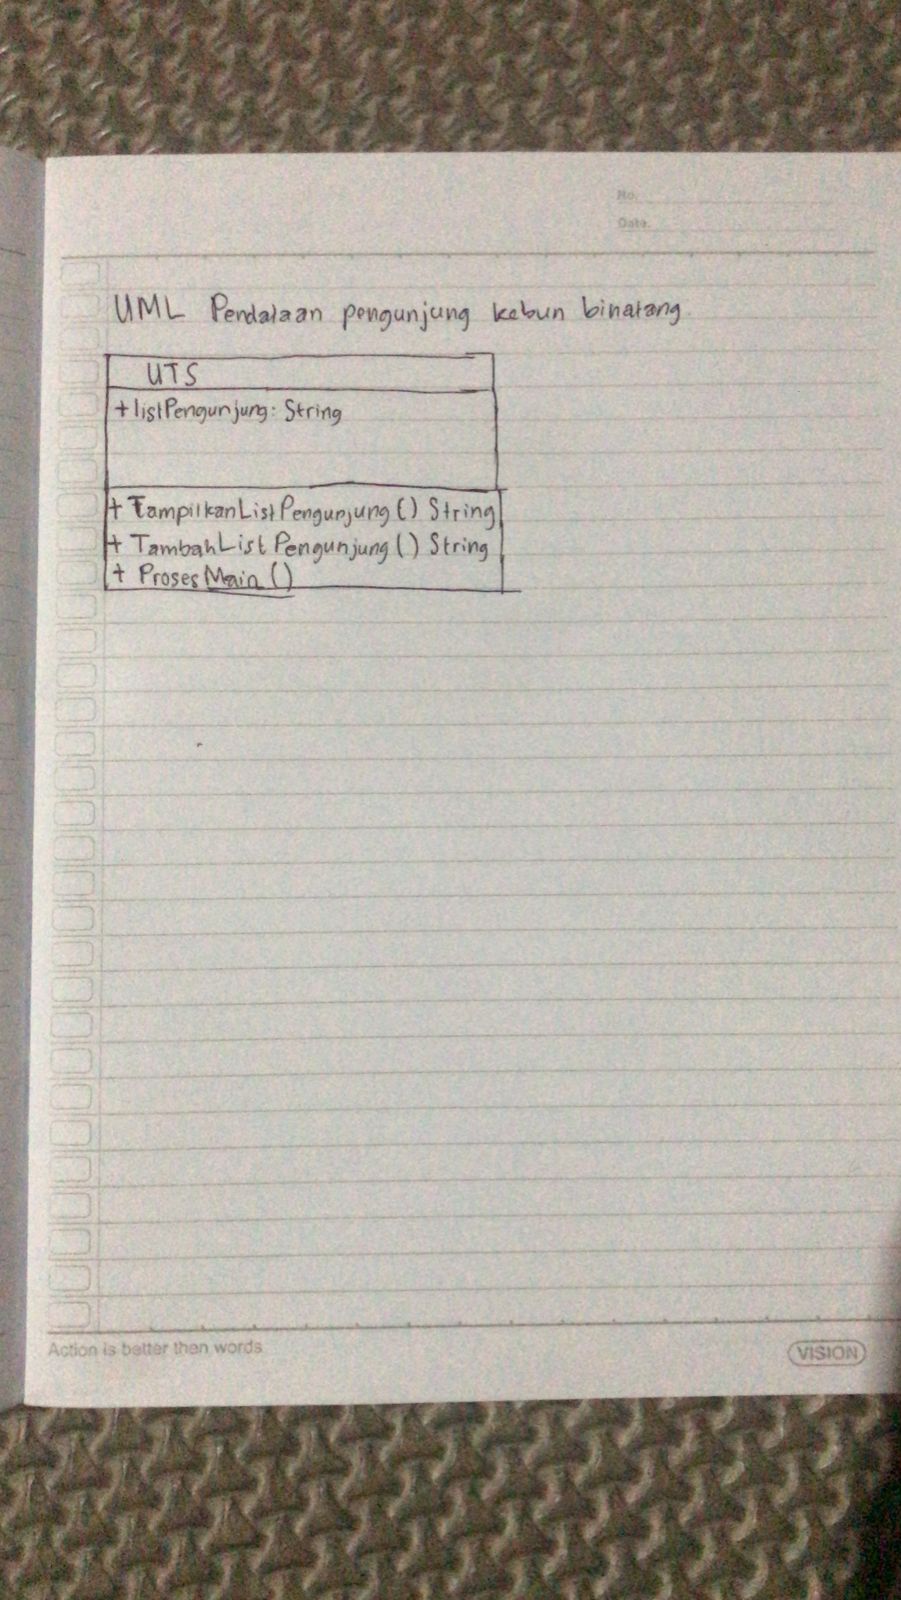 No.
Date.
UML Pendataan pengunjung kebun binatang.
UTS
+ listPengunjung: String
+ TampilkanListPengunjung () String
+ TambahListPengunjung () String
+ ProsesMain ()
Action is better then words
VISION